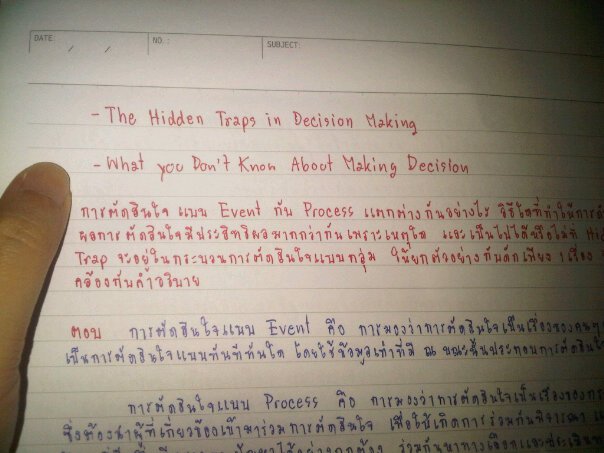 DATE: / /
NO.:
SUBJECT:
- The Hidden Traps in Decision Making
- What you Don't Know About Making Decision
การตัดสินใจ แบบ Event กับ Process แตกต่างกันอย่างไร วิธีใดที่ทำให้การ
ผลการตัดสินใจมีประสิทธิผลมากกว่ากันเพราะเหตุใด และเป็นไปได้หรือไม่ที่ Hi
Trap จะอยู่ในกระบวนการตัดสินใจแบบกลุ่ม ให้ยกตัวอย่างกับดักเพียง 1 เรื่อง
คล้องกับคำอธิบาย
ตอบ การตัดสินใจแบบ Event คือ การมองว่าการตัดสินใจเป็นเรื่องของคนๆ
เป็นการตัดสินใจแบบทันทีทันใด โดยใช้ข้อมูลเท่าที่มี ณ ขณะนั้นประกอบการตัดสินใ
การตัดสินใจแบบ Process คือ การมองว่าการตัดสินใจเป็นเรื่องของ
ซึ่งต้องนำผู้ที่เกี่ยวข้องเข้ามาร่วมการตัดสินใจ เพื่อให้เกิดการร่วมกันพิจารณา
ได้อย่างถูกต้อง ร่วมกันหาทางเลือกและประเมิน